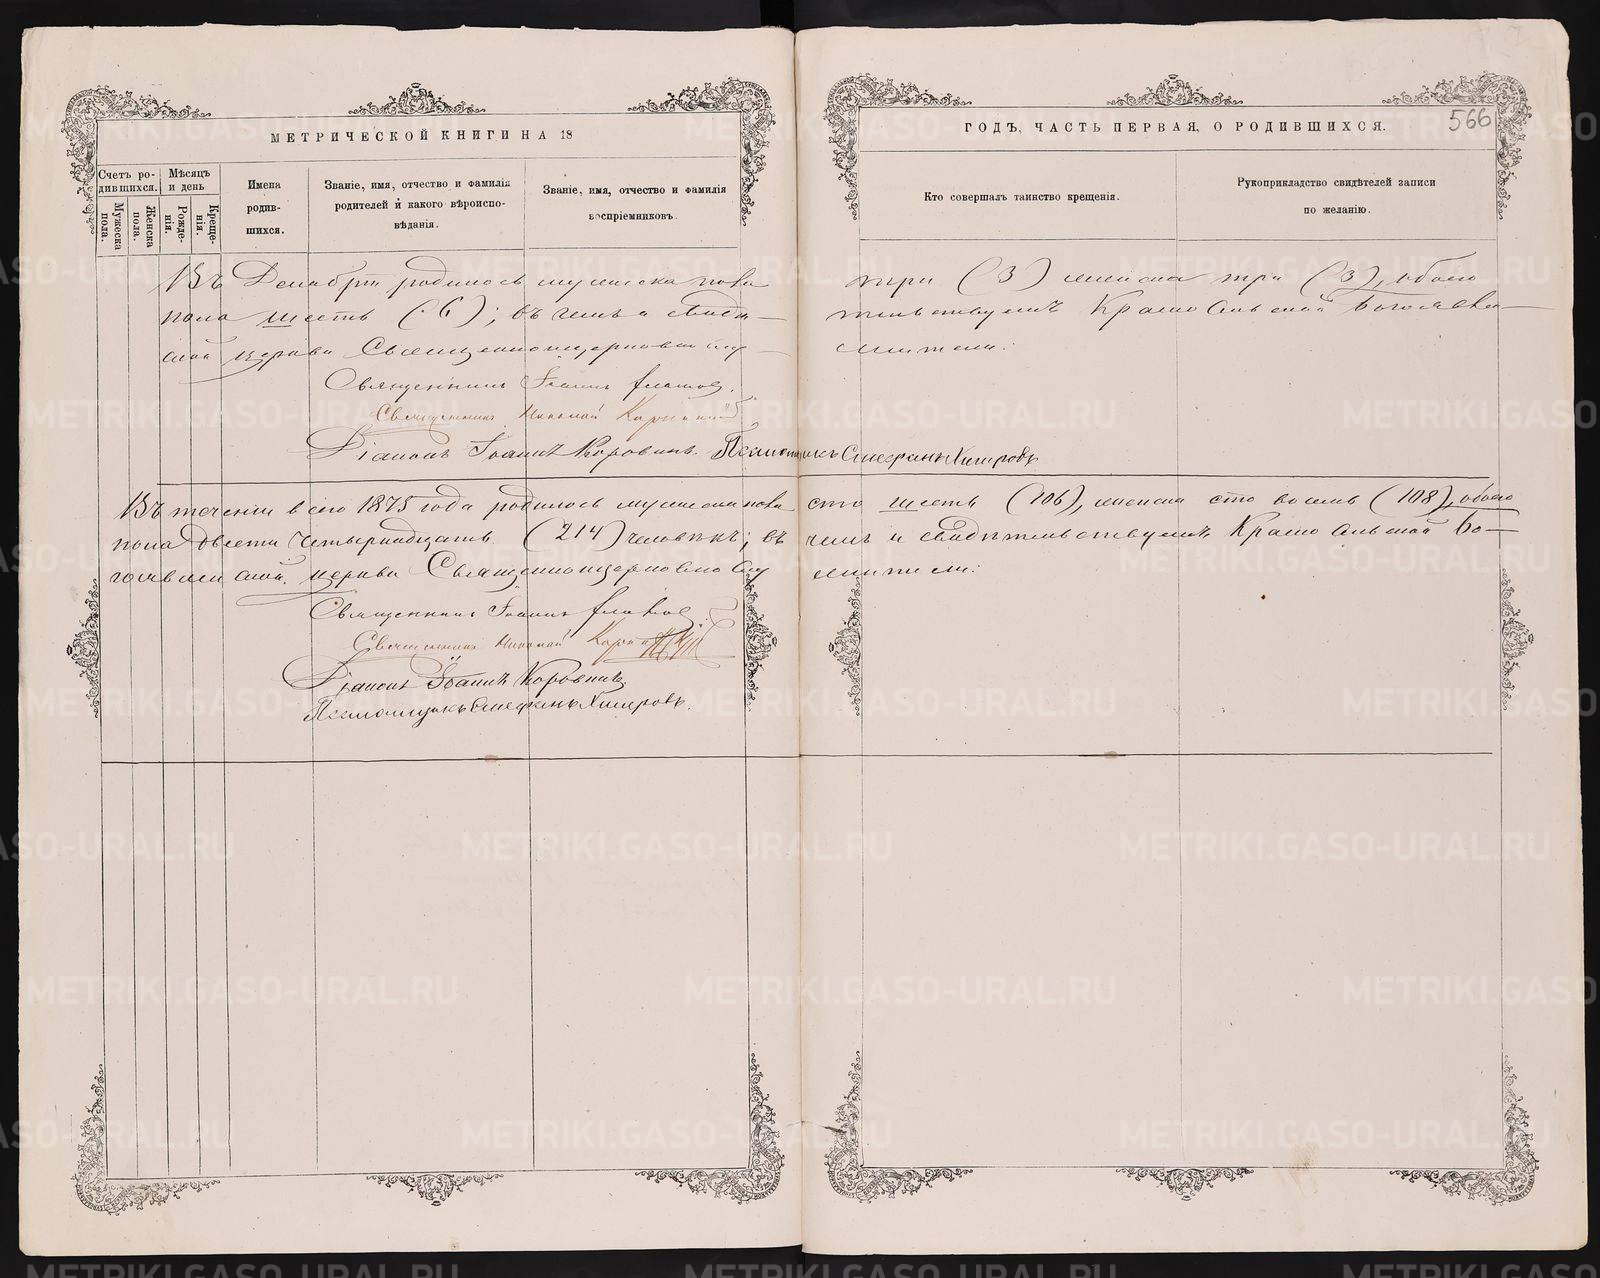 МЕТРИЧЕСКОЙ КНИГИ НА 18
ГОДЪ, ЧАСТЬ ПЕРВАЯ, О РОДИВШИХСЯ.
566
Счетъ ро-
дившихся.
Мѣсяцъ
и день
Мужеска
пола.
Женска
пола.
Рожде-
нія.
Креще-
нія.
Имена
родив-
шихся.
Званіе, имя, отчество и фамилія
родителей и какого вѣроиспо-
вѣданія.
Званіе, имя, отчество и фамилія
воспріемниковъ.
Кто совершалъ таинство крещенія.
Рукоприкладство свидѣтелей записи
по желанію.
Въ Декабрѣ родилось мужеска пола три (3) женска три (3), обоего
пола шесть (6); въ чемъ и свидѣтельствуемъ Красно
ской церкви Священноцерковнослужители:
Священникъ Іоаннъ
Священникъ Николай
Діаконъ Іоаннъ Коровинъ. Псаломщикъ Стефанъ Хитровъ
Въ теченіи всего 1875 года родилось мужеска пола сто шесть (106), женска сто восемь (108), обоего
пола двести четырнадцать (214) человѣкъ; въ чемъ и свидѣтельствуемъ Красно Бо-
гоявленской церкви Священноцерковнослужители:
Священникъ Іоаннъ
Священникъ Николай
Діаконъ Іоаннъ Коровинъ.
Псаломщикъ Стефанъ Хитровъ.
METRIKI.GASO-URAL.RU